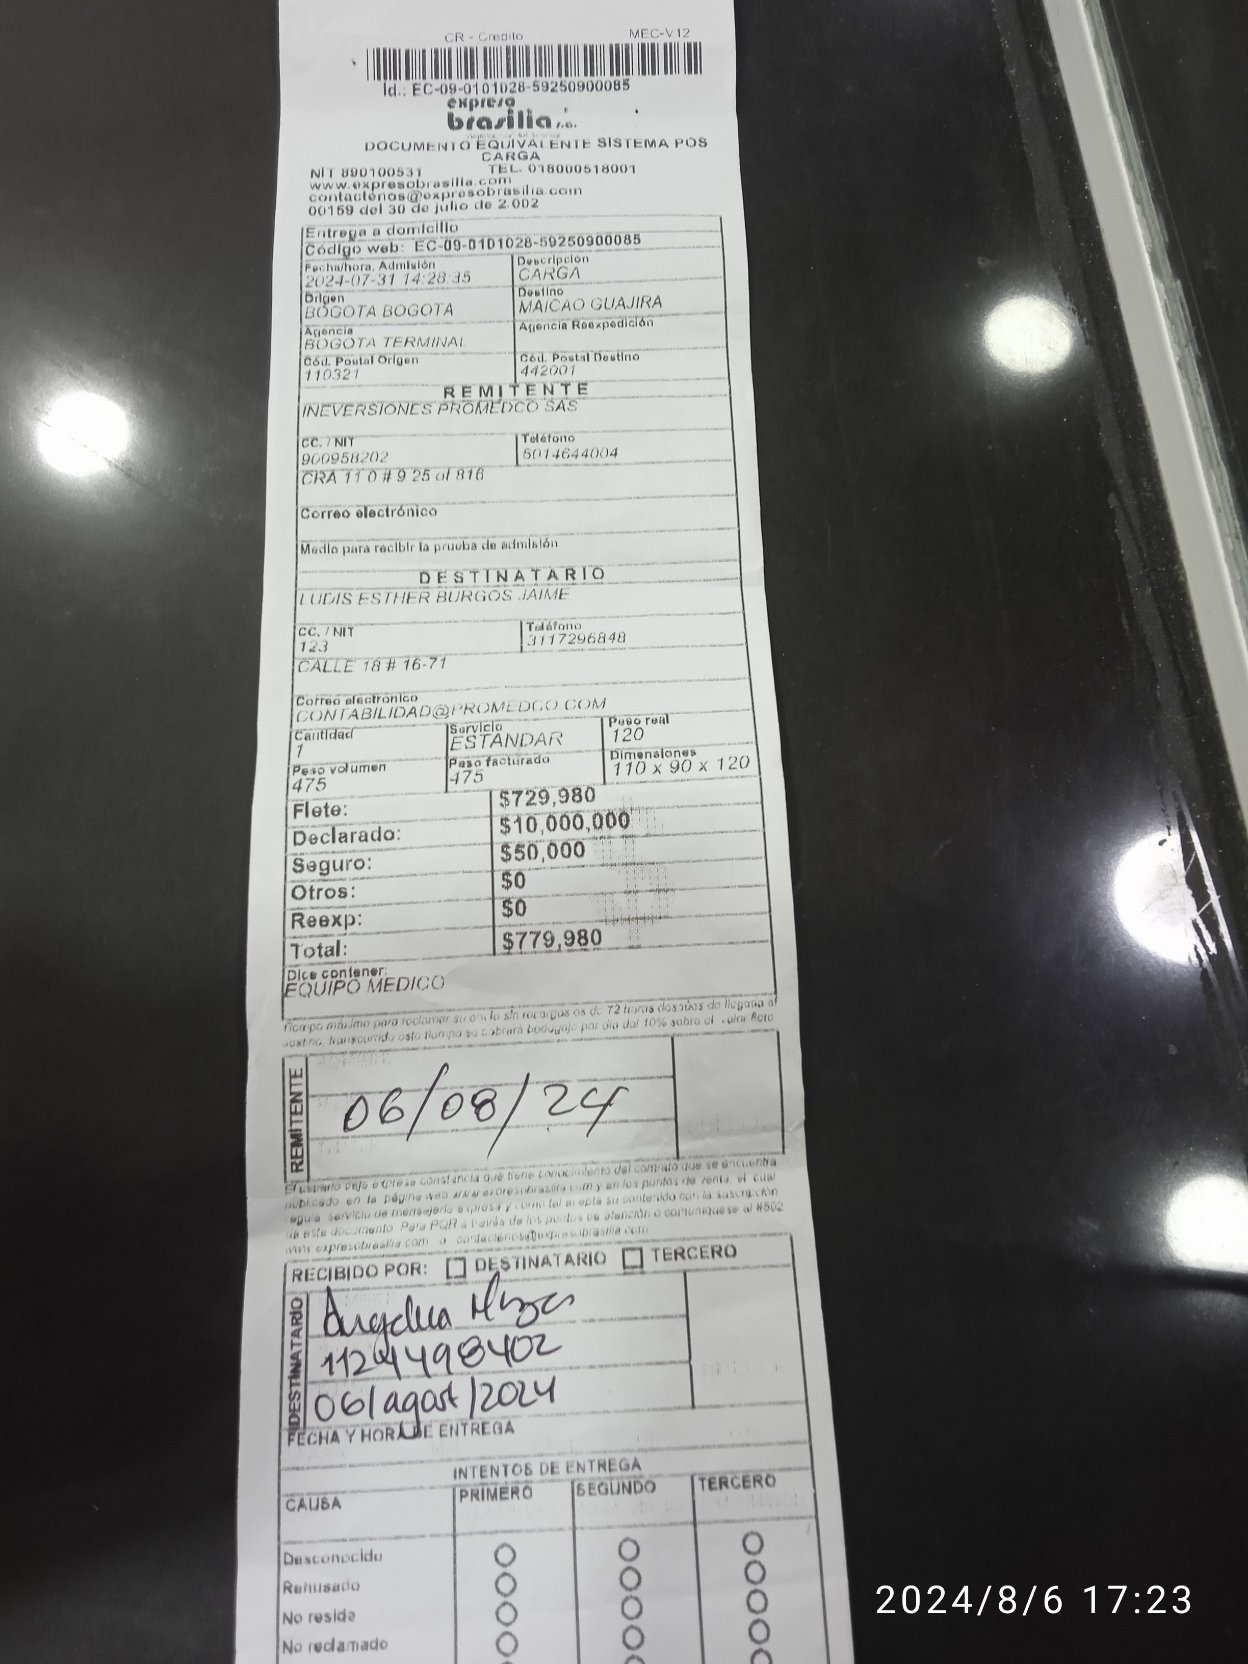 CR - Credito MEC-V12
Id.: EC-09-0101028-59250900085
expreso
brasilia s.a.
DOCUMENTO EQUIVALENTE SISTEMA POS
CARGA
NIT 890100531 TEL. 018000518001
www.expresobrasilia.com
contactenos@expresobrasilia.com
00159 del 30 de julio de 2.002
Entrega a domicilio
Código web: EC-09-0101028-59250900085
Fecha/hora, Admisión Descripción
2024-07-31 14:28:35 CARGA
Origen Destino
BOGOTA BOGOTA MAICAO GUAJIRA
Agencia Agencia Reexpedición
BOGOTA TERMINAL
Cód. Postal Origen Cód. Postal Destino
110321 442001
REMITENTE
INEVERSIONES PROMEDCO SAS
CC. / NIT Teléfono
900958202 6014644004
CRA 11 0 # 9 25 of 816
Correo electrónico
Medio para recibir la prueba de admisión
DESTINATARIO
LUDIS ESTHER BURGOS JAIME
CC. / NIT Teléfono
123 3117296848
CALLE 18 # 16-71
Correo electronico
CONTABILIDAD@PROMEDCO COM
Cantidad Servicio Peso real
1 ESTANDAR 120
Peso volumen Peso facturado Dimensiones
475 475 110 x 90 x 120
Flete: $729,980
Declarado: $10,000,000
Seguro: $50,000
Otros: $0
Reexp: $0
Total: $779,980
Dice contener:
EQUIPO MEDICO
Tiempo máximo para reclamar su envío sin recargos es de 72 horas después de llegada al
destino, transcurrido este tiempo se cobrará bodegaje por día del 10% sobre el valor flete
REMITENTE
06/08/24
El usuario deja expresa constancia que tiene conocimiento del contrato que se encuentra
publicado en la página web www.expresobrasilia.com y en los puntos de venta, el cual
regula servicio de mensajería expresa y como tal acepta su contenido con la suscripción
de este documento. Para PQR a través de los puntos de atención o comuníquese al #502
www.expresobrasilia.com o contactenos@expresobrasilia.com
RECIBIDO POR: DESTINATARIO TERCERO
DESTINATARIO
1124498402
06/agost/2024
FECHA Y HORA DE ENTREGA
INTENTOS DE ENTREGA
CAUSA PRIMERO SEGUNDO TERCERO
Desconocido
Rehusado
No reside
No reclamado
2024/8/6 17:23